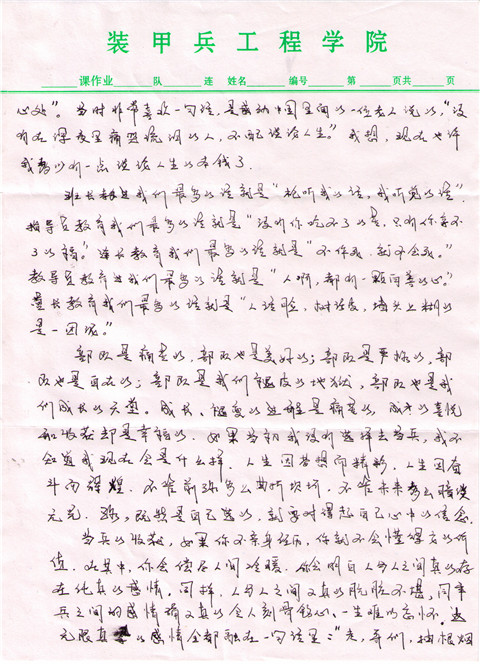 装甲兵工程学院
课作业 队 连 姓名 编号 第 页共 页
心处”。当时非常喜欢一句话,是感动中国里面的一位老人说的,“没
有在深夜里痛哭流泪的人,不配谈论人生。”我想,现在也许
我可以有一点谈论人生的本钱了.
班长教导我们最多的话就是“机听我的话,我听党的话”
指导员教育我们最多的话就是“没有你吃不了的苦,只有你享不
了的福。”连长教育我们最多的话就是“不作死,就不会死。”
教导员教育我们最多的话就是“人啊,都有一颗向善的心。”
营长教育我们最多的话就是“人活脸,树活皮,墙头上糊的
是一团泥。”
部队是痛苦的,部队也是美好的;部队是严格的,部
队也是自在的;部队是我们蜕皮的地狱,部队也是我
们成长的天堂。成长、蜕变的过程是痛苦的,成才的喜悦
和收获却是幸福的。如果当初我没有选择去当兵,我不
知道我现在会是什么样.人生因梦想而精彩,人生因奋
斗而辉煌.不管前路多么曲折坎坷,不管未来多么暗淡
无光.路,既然是自己选的,就要对得起自己心中的信念.
当兵的收获,如果你不亲身经历,你就不会懂得它的价
值.在其中,你会使尽人间冷暖.你会明白人与人之间真的存
在纯真的感情,同样,人与人之间又真的肮脏不堪,同年
兵之间的感情痛又真的令人刻骨铭心、一生难以忘怀.这
无限真的感情全都融在一句话里:“走,哥们,抽根烟